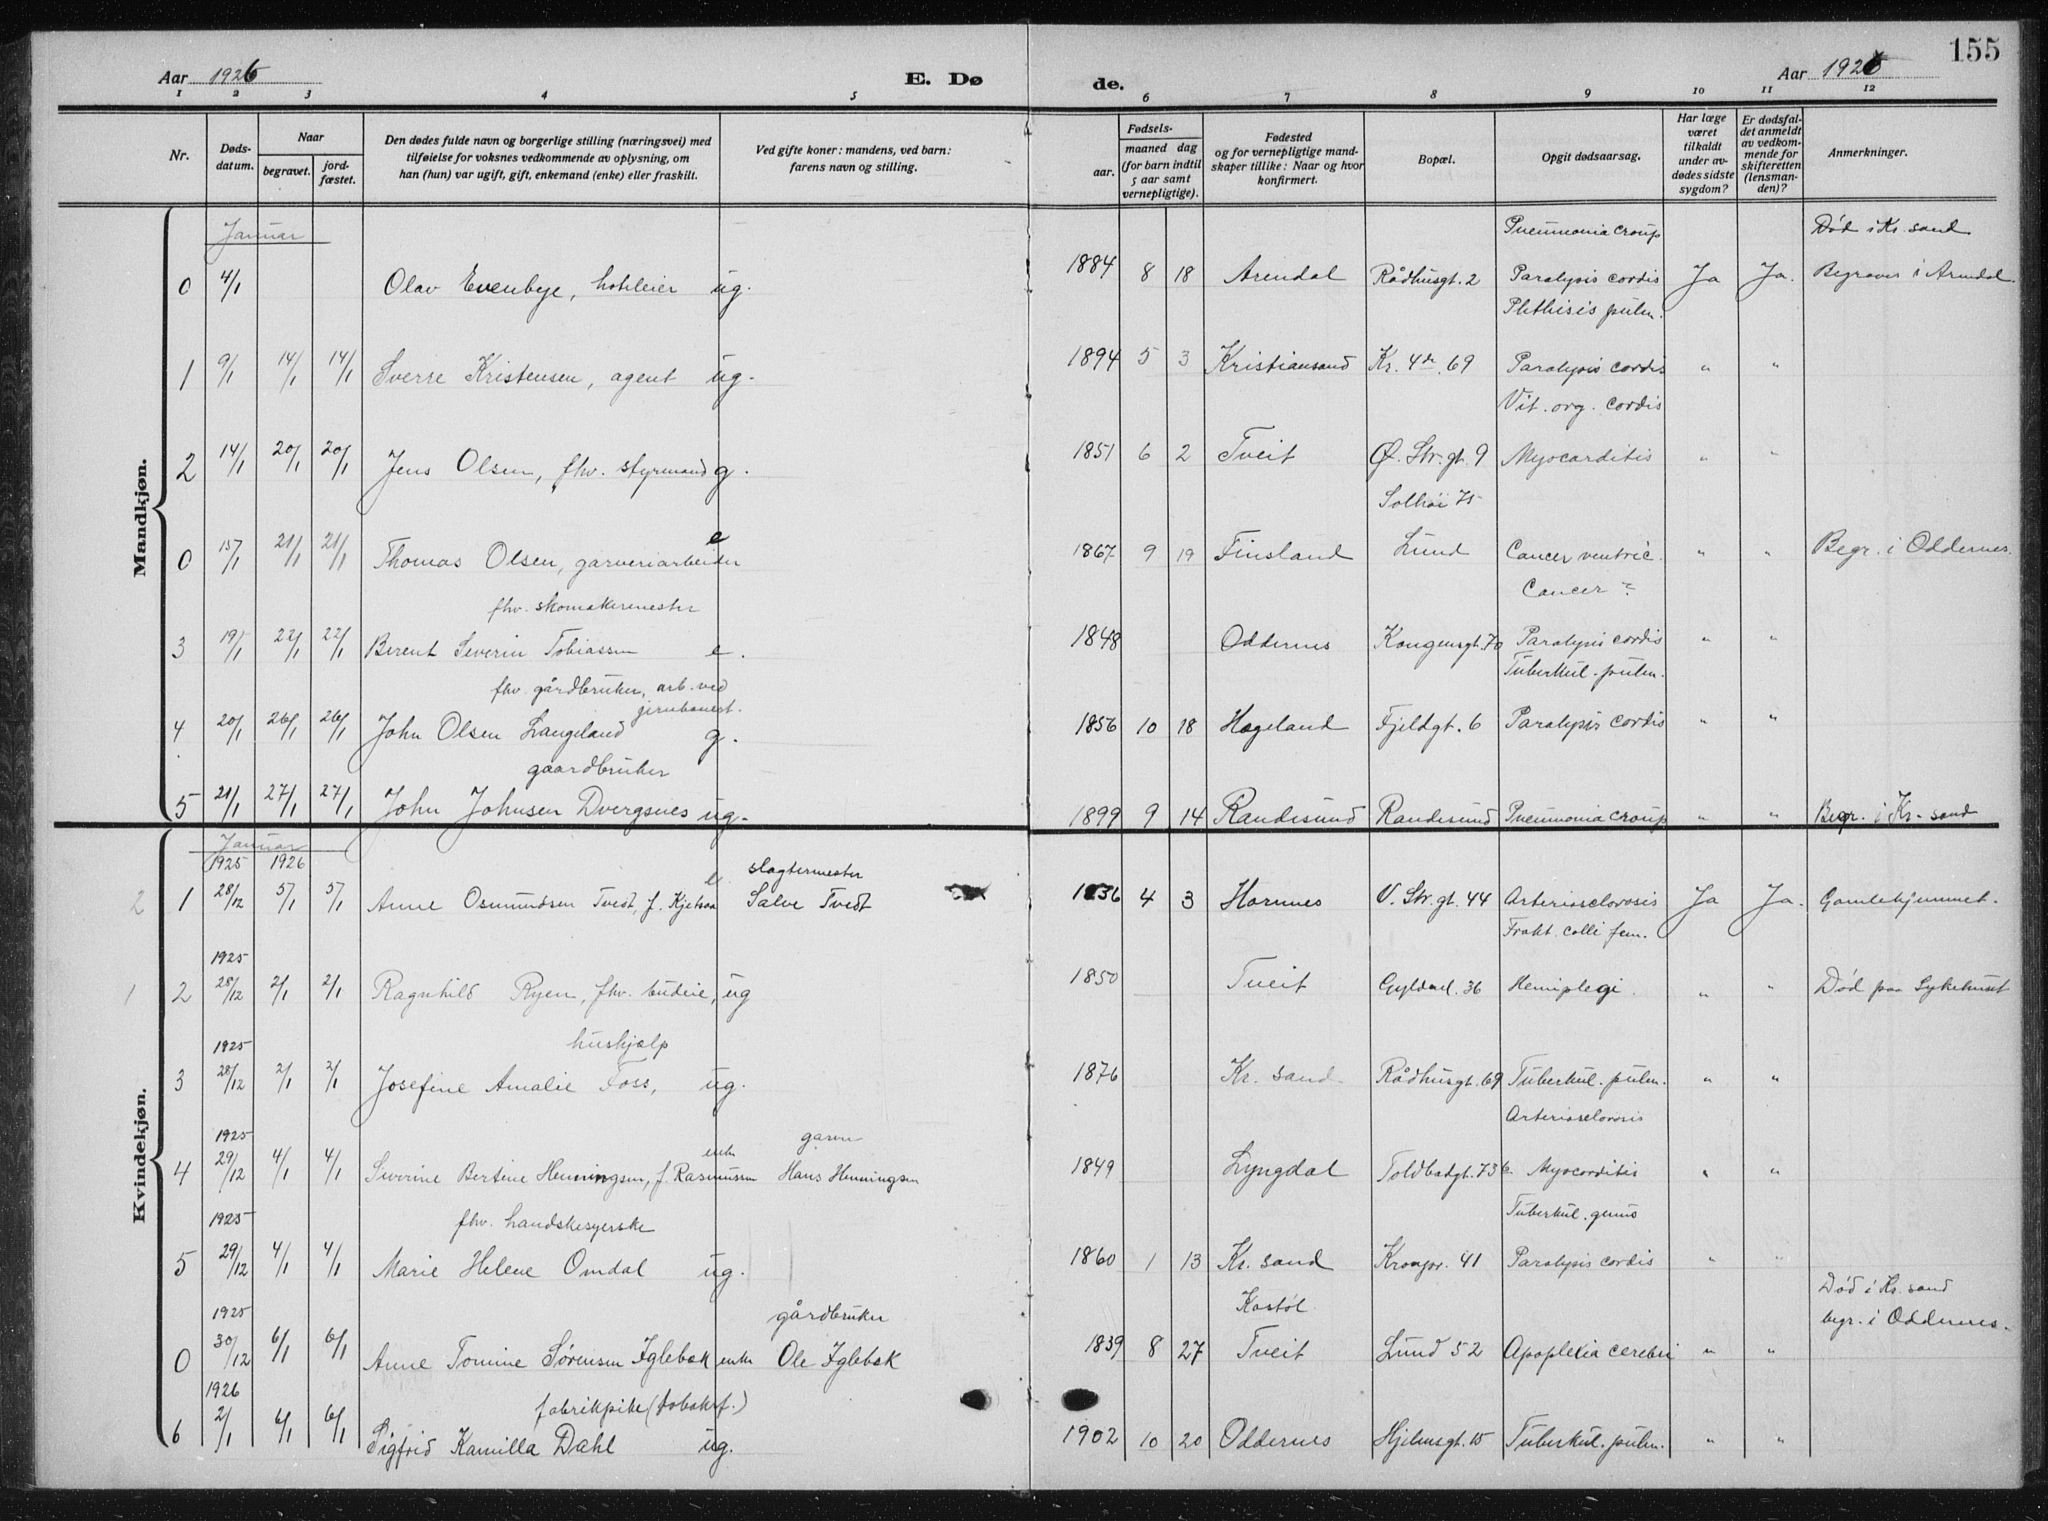 155
Aar 1926 E. Døde. Aar 1926
1 2 3 4 5 6 7 8 9 10 11 12
Nr.
Døds-
datum.
Naar
begravet.
jord-
fæstet.
Den dødes fulde navn og borgerlige stilling (næringsvei) med
tilføielse for voksnes vedkommende av oplysning, om
han (hun) var ugift, gift, enkemand (enke) eller fraskilt.
Ved gifte koner: mandens, ved barn:
farens navn og stilling.
Fødsels-
aar.
maaned dag
(for barn indtil
5 aar samt
vernepligtige).
Fødested
og for vernepligtige mand-
skaper tillike: Naar og hvor
konfirmert.
Bopæl.
Opgit dødsaarsag.
Har læge
været
tilkaldt
under av-
dødes sidste
sygdom?
Er dødsfal-
det anmeldt
av vedkom-
mende for
skifteretten
(lensman-
den)?
Anmerkninger.
Mandkjøn.
Januar Pneumonia croup Død i Kr. sand
0 4/1 Olav Evenbye, hoteleier ug. 1884 8 18 Arendal Rådhusgt. 2 Paralysis cordis Ja Ja. Begraves i Arendal.
Phthisis pulm.
1 9/1 14/1 14/1 Sverre Kristensen, agent ug. 1894 5 3 Kristiansand Kr. 4de 69 Paralysis cordis " "
Vit. org. cordis
2 14/1 20/1 20/1 Jens Olsen, fhv. styrmand g. 1851 6 2 Tveit Ø. Str. gt. 9 Myocarditis " "
Solhøi 75
0 15/1 21/1 21/1 Thomas Olsen, garveriarbeider e 1867 9 19 Finsland Lund Cancer ventric. " " Begr. i Oddernes.
fhv. skomakermester Cancer ?
3 19/1 22/1 22/1 Berent Severin Tobiassen e. 1848 Oddernes Kongensgt. 70 Paralysis cordis " "
fhv. gårdbruker, arb. ved Tuberkul. pulm.
jernbanest.
4 20/1 26/1 26/1 John Olsen Langeland g. 1856 10 18 Hægeland Fjeldgt. 6 Paralysis cordis " "
gaardbruker
5 21/1 27/1 27/1 John Johnsen Dvergsnes ug. 1899 9 14 Randesund Randesund Pneumonia croup " " Begr. i Kr. sand
Kvindekjøn.
Januar
1925 1926 e. slagtermester
2 1 28/12 5/1 5/1 Anne Osmundsen Tvedt, f. Kjetsaa Salve Tvedt 1836 4 3 Hornnes V. Str. gt. 44 Arteriosclerosis Ja Ja. Gamlehjemmet.
Frakt. colli fem.
1925
1 2 28/12 2/1 2/1 Ragnhild Ryen, fhv. budeie, ug 1850 Tveit Gyldenl. 36 Hemiplegi. " " Død paa Sykehuset
1925 hushjælp
3 28/12 2/1 2/1 Josefine Amalie Foss, ug. 1876 Kr. sand Rådhusgt. 69 Tuberkul. pulm. " "
Arteriosclerosis
1925 enke garver
4 29/12 4/1 4/1 Severine Bertine Henningsen, f. Rasmussen Hans Henningsen 1849 Lyngdal Toldbodgt. 73 b Myocarditis " "
1925 fhv. handskesyerske Tuberkul. genus
5 29/12 4/1 4/1 Marie Helene Omdal ug. 1860 1 13 Kr. sand Kronpr. 41 Paralysis cordis " "
1925 gårdbruker Kostøl Død i Kr. sand
begr. i Oddernes.
0 30/12 6/1 6/1 Anne Tomine Sørensen Iglebæk enke Ole Iglebæk 1839 8 27 Tveit Lund 52 Apoplexia cerebri " "
1926 fabrikpike (tobaksf.)
6 2/1 6/1 6/1 Sigfrid Kamilla Dahl ug. 1902 10 20 Oddernes Hjelmsgt. 15 Tuberkul. pulm. " "